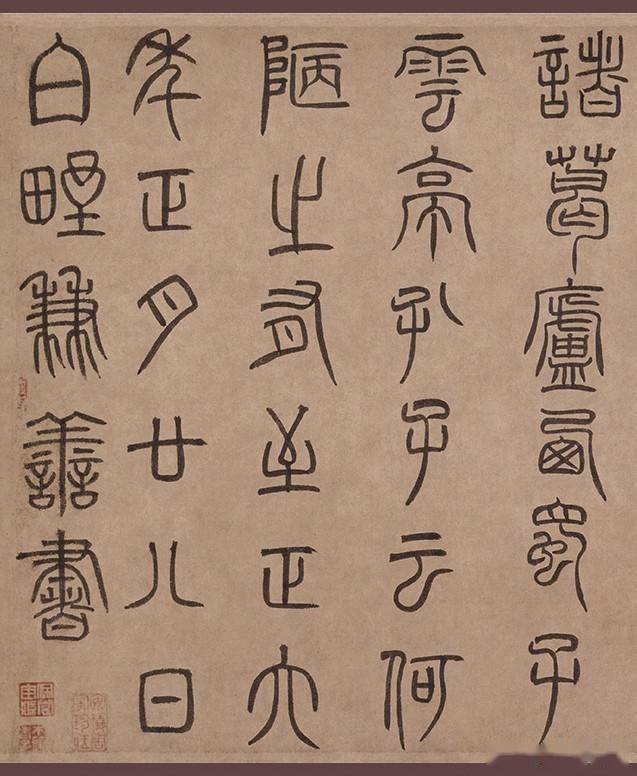 諸葛廬西蜀子
雲亭孔子云何
陋之有至正六
年正月廿八日
白野兼善書